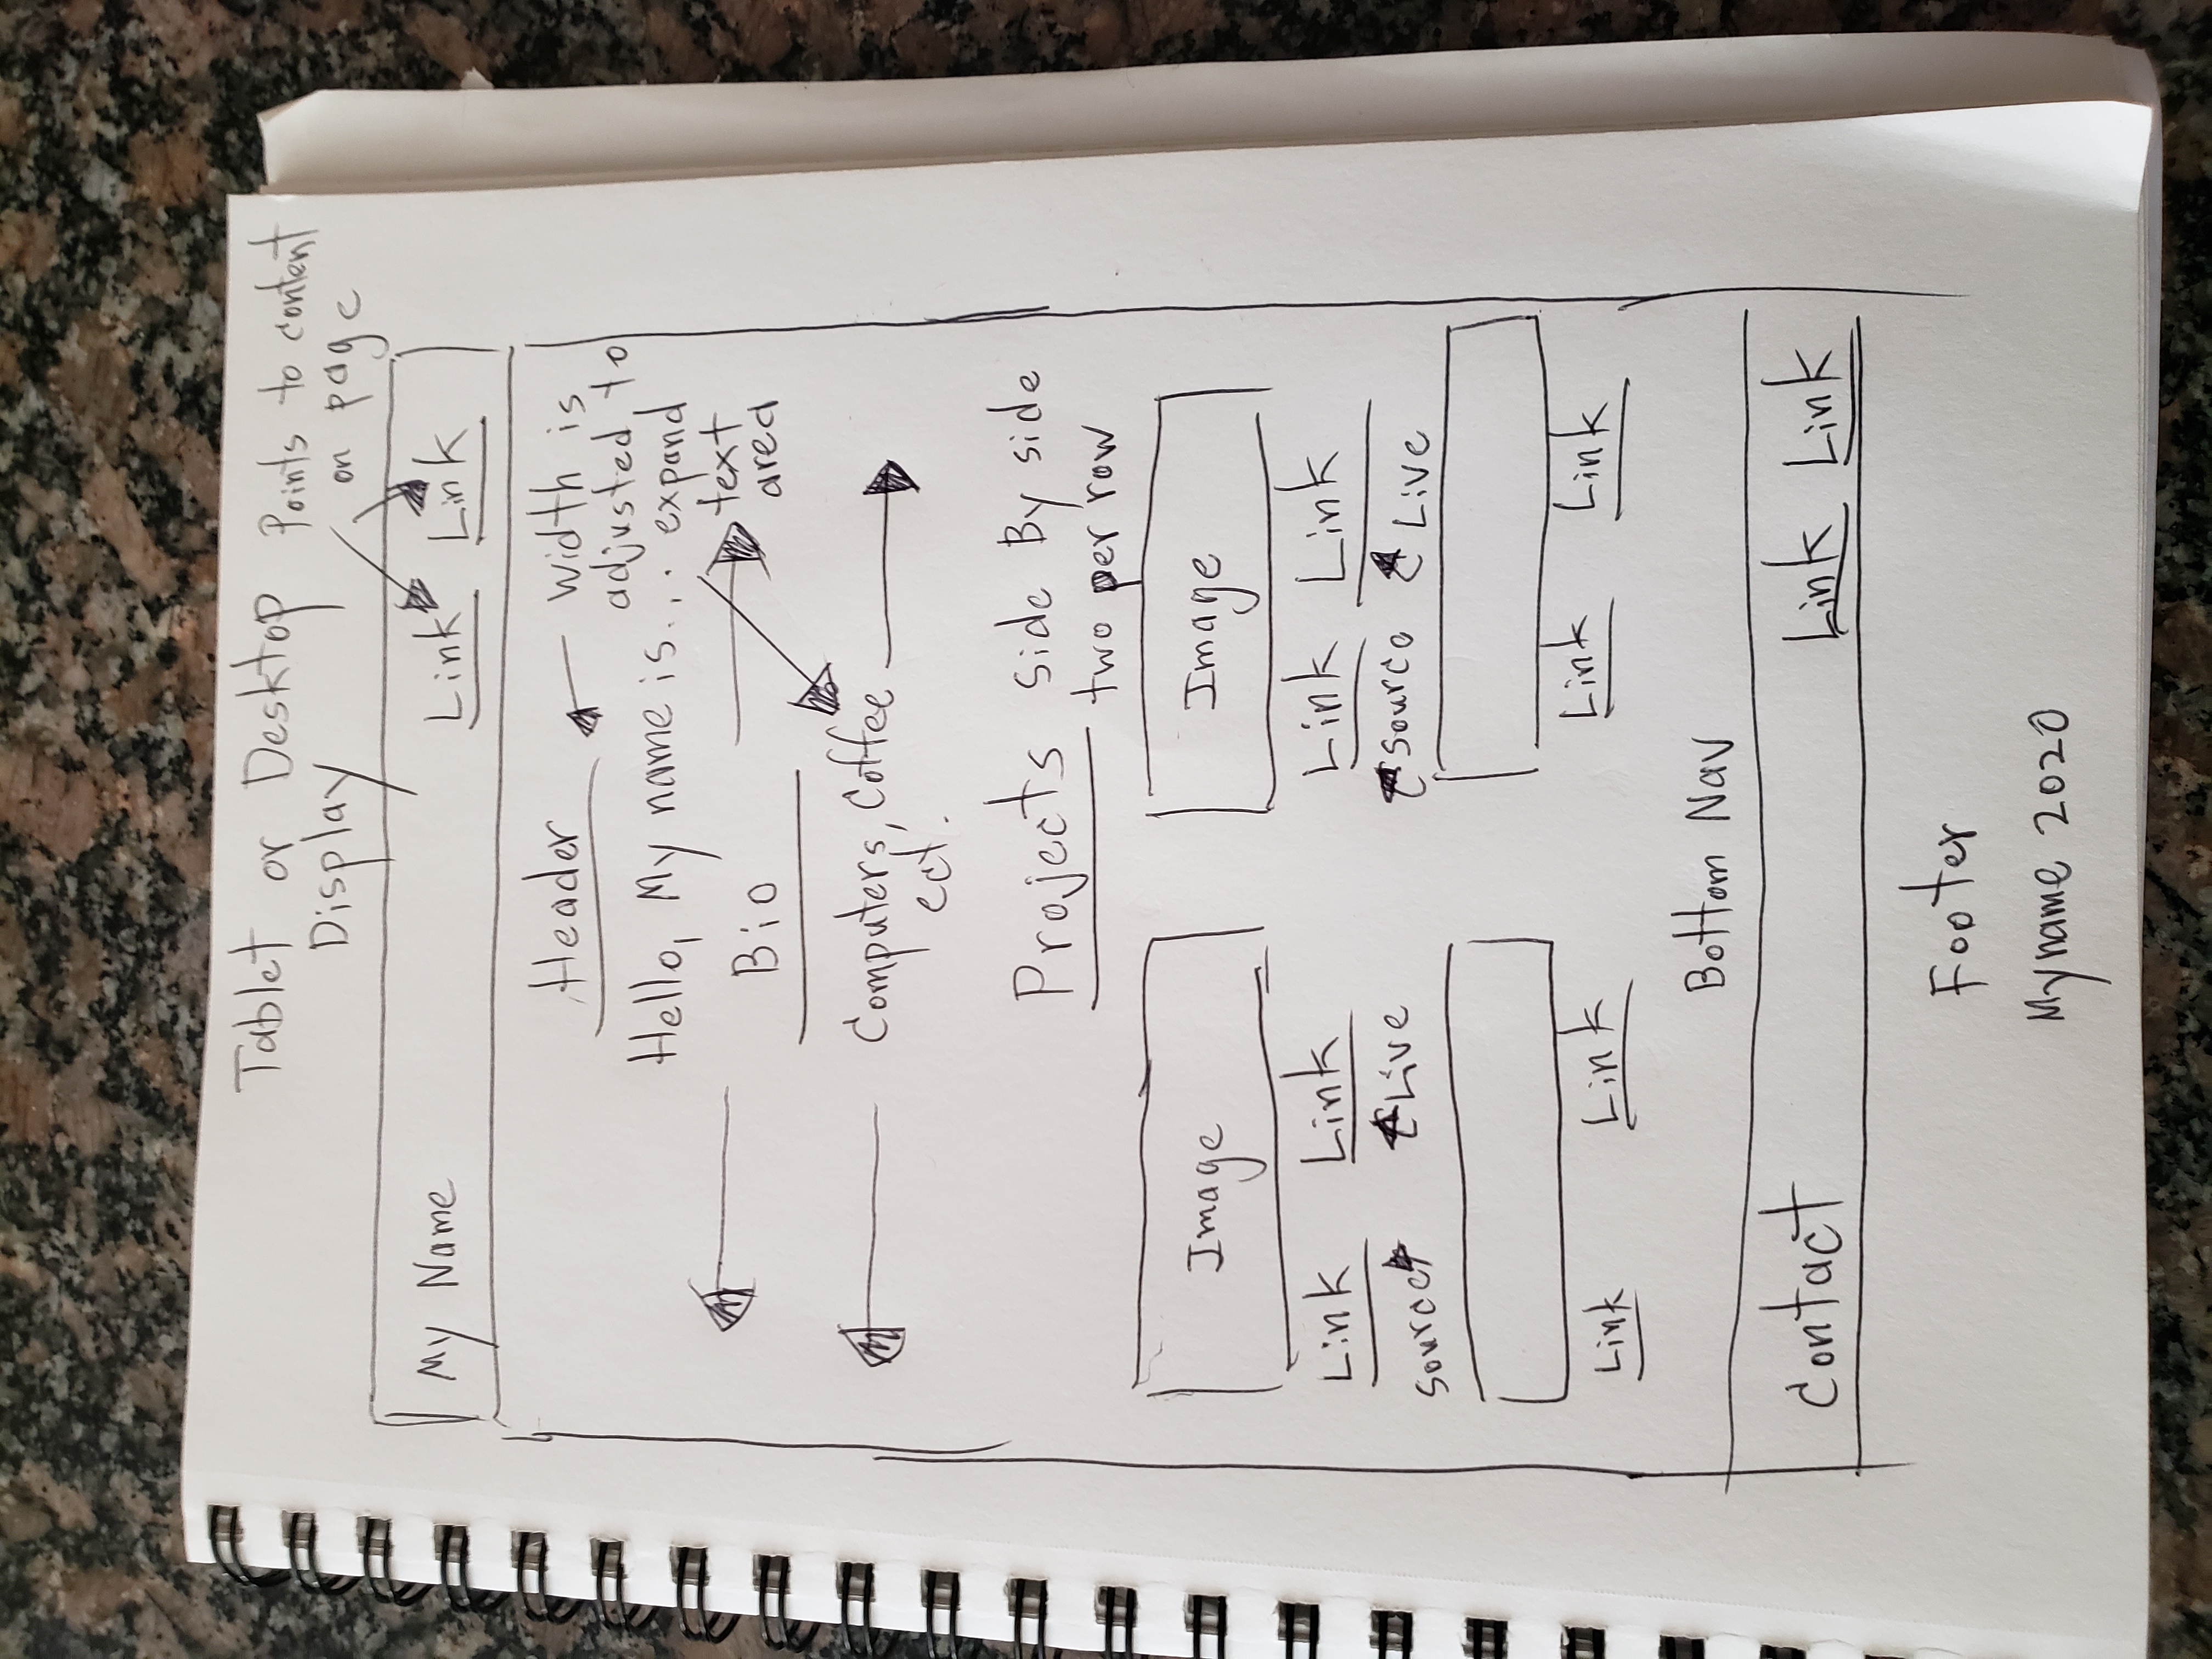 Tablet or Desktop
Display
Points to content
on page
My Name Link Link
Header
Width is
adjusted to
expand
text
area
Hello, My name is...
Bio
Computers, Coffee
ect.
Projects
Side By side
two per row
Image Image
Link Link Link Link
Source Live Source Live
Link Link Link Link
Bottom Nav
Contact Link Link
Footer
Myname 2020